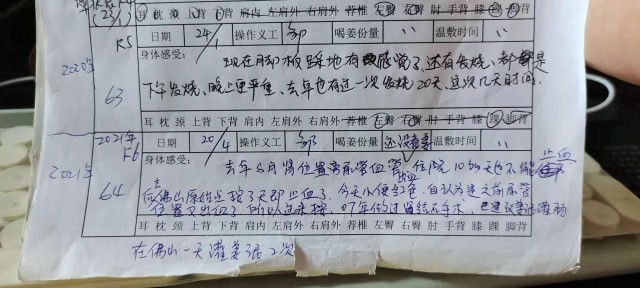 耳 枕 颈 上背 下背 肩内 左肩外 右肩外 脊椎 左臀 右臀 肘 手背 膝 踝 脚背
2020年 K5 日期 24/1 操作义工 喝姜份量 温敷时间
身体感受: 现在用脚板踩地有感觉了,还有发烧,都是
63 下午发烧,晚上更严重,去年也有过一次发烧20天,这次几天时间.
耳 枕 颈 上背 下背 肩内 左肩外 右肩外 脊椎 左臀 右臀 肘 手背 膝 踝 脚背
2021年 K6 日期 20/4 操作义工 喝姜份量 还没喝姜 温敷时间
2021年 身体感受: 去年6月肾位置 住院10多天也不能止血
64 佛山原始点按了天即止血了. 今天小便红色,自认为是之前尿管
位置又出血了,所以过来按. 07年做过肾结石手术, 建议姜汤灌肠
耳 枕 颈 上背 下背 肩内 左肩外 右肩外 脊椎 左臀 右臀 肘 手背 膝 踝 脚背
在佛山一天灌姜泥2次